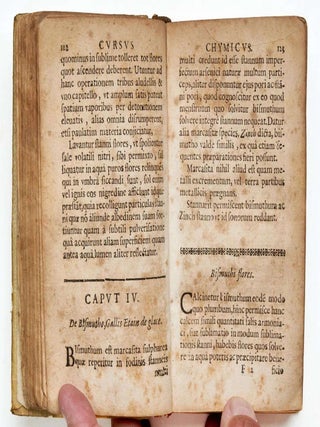 112 CURSUS
quominus in sublime tolleret tot flores
quot ascendere deberent. Utuntur ad
hanc operationem tribus aludellis &
uno capitello, ut amplum satis patuat
spatium vaporibus per detonationem
elevatis, alias omnia disrumperent,
etsi paulatim materia conjicetur.
Lavantur stanni flores, ut spoliontur
sale volatili nitri, sibi permixto, sal
siquatur in aqua puros flores relinquës
qui in umbra siccandi sunt, sol enim
vel ignis eos nigredine afficiunt idque
præstat, quia recolligunt particulas stan
ni quæ nō alimde adepdinem suam sor
tiuntur quam à subtili pulverisatione
quâ acquirunt aliam superficiem quam
antea aqua lumen aliter reflectatur.
CAPUT IV.
De Bismutho, Gallis Etain de glace.
Bismuthum est marcasita sulphurea
quæ reperitur in fodinis stanneis
CHYMICUS. 113
multi credunt id esse stannum imper-
fectum arsenici naturæ multum parti-
ceps, aliter disponuntur ejus pori ac stã-
ni pori, quod cognoscitur ex eo quod
menstruum quod solvit bismuthum
solvere integrè stannum nequeat. Datur
alia marcasitæ species, Zinch dicta, bis-
mutho valde similis, ex qua etiam se-
quentes præparationes fieri possunt.
Marcasita nihil aliud est quam me-
tallis excrementum, vel terra partibus
metallicis, prægnans.
Stannum permiscent bismuthum ac
Zinch stanno ut id sonorum reddant.
Bismuthi flores.
Calcinetur bismuthum eodē modo
quo plumbum, hinc permisce hanc
calcem simili quantitate salis armonia-
ci, fiat sublimatio, ad modum sublima-
tionis stanni, habebis flores quos solve-
re in aqua poteris ac præcipitare bene-
F iij ficio